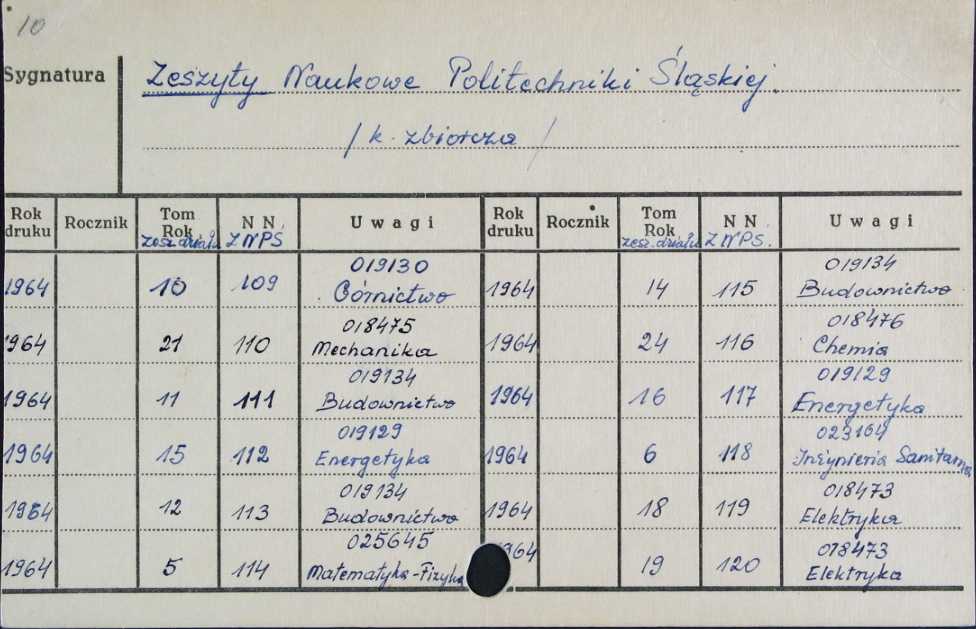 10
Sygnatura
Zeszyty Naukowe Politechniki Śląskiej.
/k. zbiorcza/
Rok druku Rocznik Tom Rok zesz. działu N N ZNPŚ Uwagi Rok druku Rocznik Tom Rok zesz. działu N N ZNPŚ. Uwagi
1964 10 109 019130 Górnictwo 1964 14 115 019134 Budownictwo
1964 21 110 018475 Mechanika 1964 24 116 018476 Chemia
1964 11 111 019134 Budownictwo 1964 16 117 019129 Energetyka
1964 15 112 019129 Energetyka 1964 6 118 023164 Inżynieria Sanitarna
1964 12 113 019134 Budownictwo 1964 18 119 018473 Elektryka
1964 5 114 025645 Matematyka-Fizyka 1964 19 120 018473 Elektryka